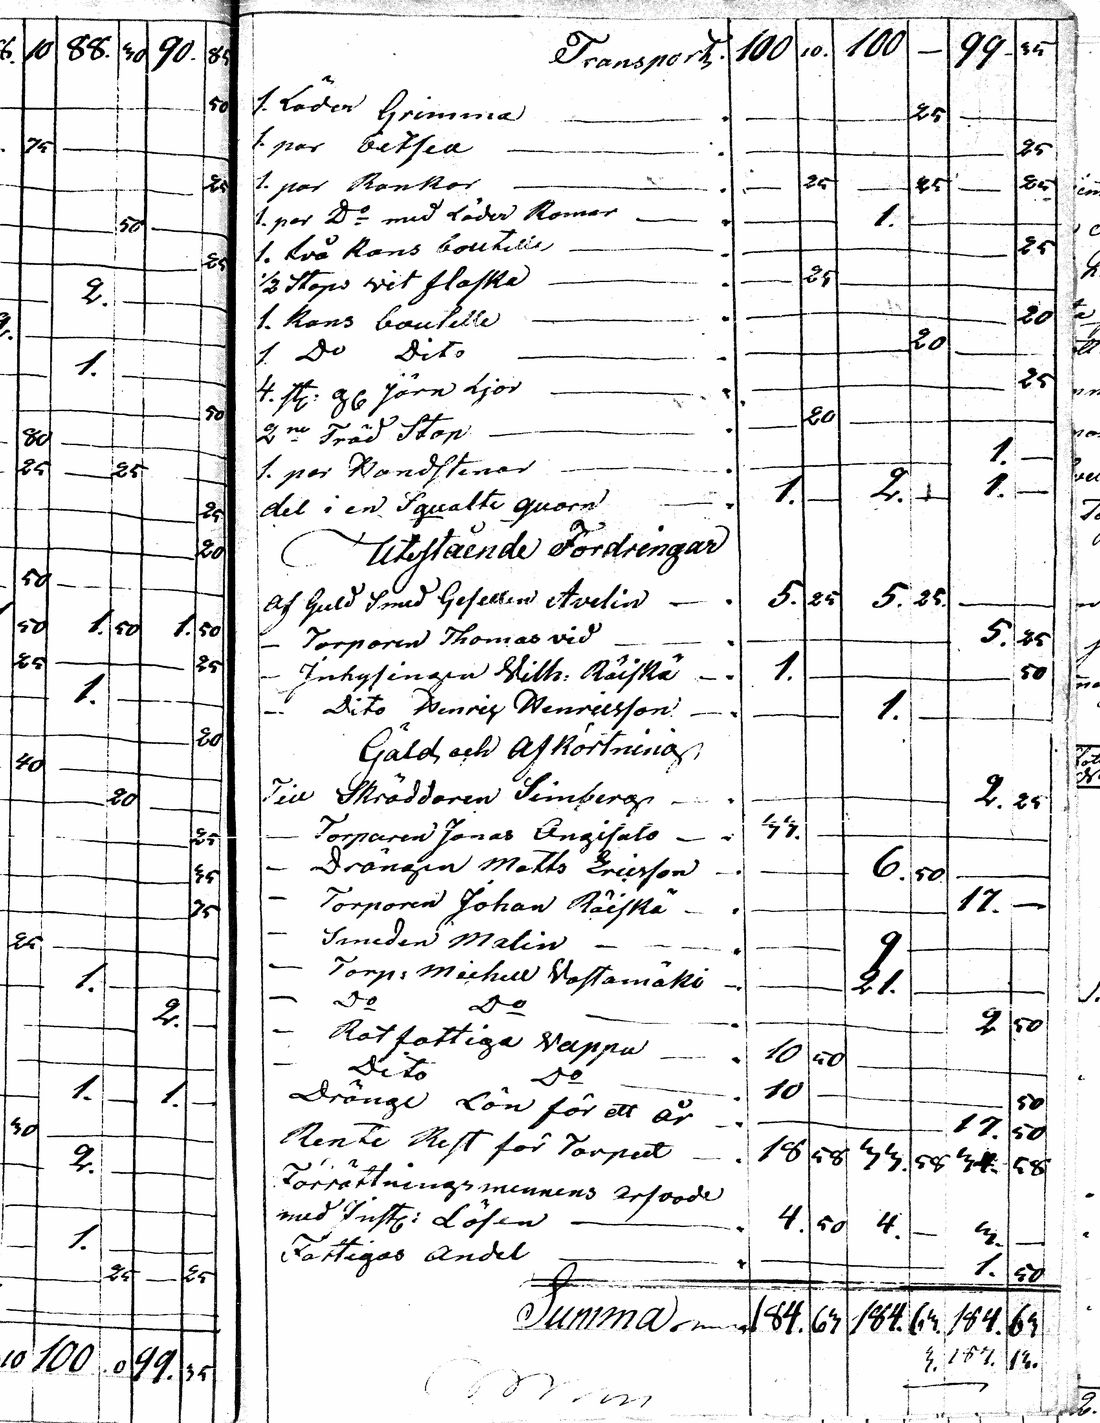 10 88. 30 90. 85
50
75
25
50
25
2.
1.
50
80
25 25
25
20
50
50 1. 50 1. 50
25 25
1.
20
40
20
25
35
75
25
1.
2.
1. 1.
30
2.
1.
25 25
10 100 . 0 99. 35
Transport. 100 10. 100 — 99. 35
1. Läder Grimma 25
1. par betsea 25
1. par Rankor 25 25 25
1. par Do med Läder Romar 1.
1. två kans boutelle 25
1/2 Stops vit flaska 25
1. kans boutelle 20
1. Do Dito 20
4. st: Järn Ljor 25
2ne Träd Stop 20
1. par Handstenar 1. —
del i en Squalte quarn 1. — 2. 1. —
Utestående Fordringar
Af Guld Smed Gesellen Avelin — 5. 25 5. 25.
— Torparen Thomas vid 5. 25
— Inhysingen Wilh: Räiskä — 1. 50
— Dito Henrig Henricsson 1.
Gäld och Afkortning
Till Skräddaren Simberg — 2. 25
— Torparen Jonas Angisalo — 77.
— Drängen Matts Ericsson — 6. 50
— Torparen Johan Räiskä — 17. —
— Smeden Malin — 9
— Torp: Michell Vastamäki — 21.
— Do Do 2 50
— Rotfattiga Vappu 10 50
— Dito Do 10 50
Dränge Lön för ett år 17. 50
Rente Rest för Torpet — 18 58 33. 58 58
Förrättningsmennens arfvode
med Inst: Lösen 4. 50 4. — 3. —
Fattigas Andel 1. 50
Summa 184. 63 184. 63. 184. 63
3. 187. 13.